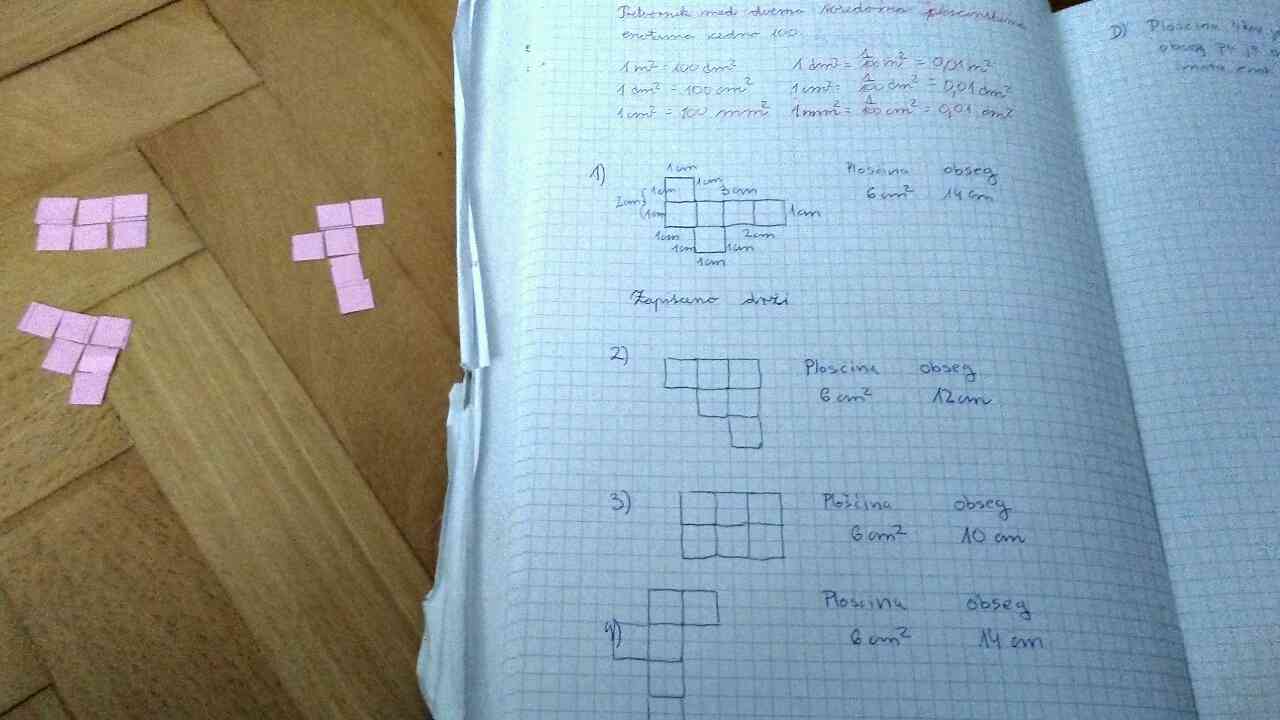 Pretvornik med dvema sosednima ploščinskima
enotama vedno 100.
1m² = 100 dm² 1 dm² = 1/100 m² = 0,01 m²
1 dm² = 100 cm² 1cm² = 1/100 dm² = 0,01 dm²
1cm² = 100 mm² 1mm² = 1/100 cm² = 0,01 cm²
1) 1cm Ploscina obseg
1cm 1cm 3cm 6 cm² 14 cm
2cm
1cm 1cm
1cm 2cm
1cm 1cm
1cm
Zapisano drži
2) Ploscina obseg
6 cm² 12cm
3) Ploščina obseg
6 cm² 10 cm
4) Ploscina obseg
6 cm² 14 cm
D) Ploscina
obseg